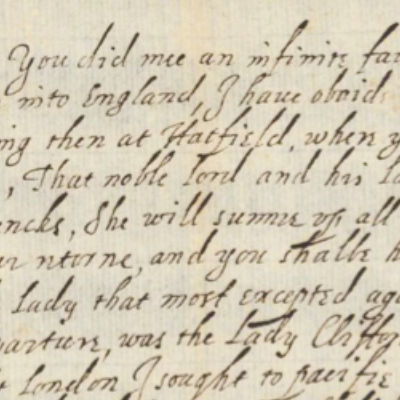 You did mee an infinite fa
into England, I have
ing then at Hatfield, when y
, That noble Lord and his La
encks, She will summe up all
ur ntorne, and you shalle h
Lady that most excepted aga
parture, was the Lady Cliffor
London I sought to pacifie